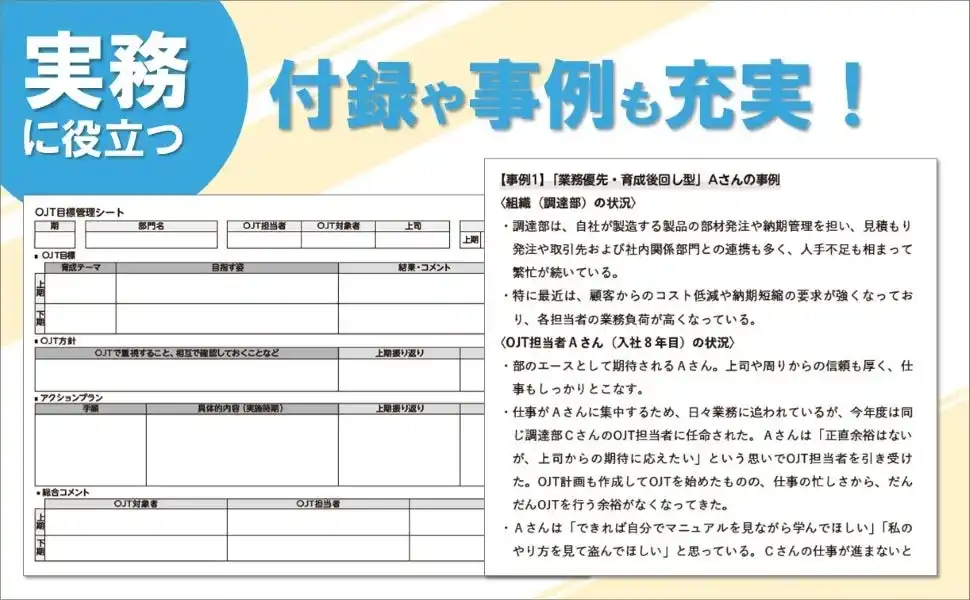 実務
に役立つ
付録や事例も充実！
OJT目標管理シート
期 部門名 OJT担当者 OJT対象者 上司
上期
■ OJT目標
育成テーマ 目指す姿 結果・コメント
上期
下期
■ OJT方針
OJTで重視すること、相互で確認しておくことなど 上期振り返り
■ アクションプラン
手順 具体的内容（実施時期） 上期振り返り
■ 総合コメント
OJT対象者 OJT担当者
上期
下期
【事例1】「業務優先・育成後回し型」Aさんの事例
〈組織（調達部）の状況〉
・調達部は、自社が製造する製品の部材発注や納期管理を担い、見積もり
発注や取引先および社内関係部門との連携も多く、人手不足も相まって
繁忙が続いている。
・特に最近は、顧客からのコスト低減や納期短縮の要求が強くなってお
り、各担当者の業務負荷が高くなっている。
〈OJT担当者Aさん（入社8年目）の状況〉
・部のエースとして期待されるAさん。上司や周りからの信頼も厚く、仕
事もしっかりとこなす。
・仕事がAさんに集中するため、日々業務に追われているが、今年度は同
じ調達部CさんのOJT担当者に任命された。Aさんは「正直余裕はない
が、上司からの期待に応えたい」という思いでOJT担当者を引き受け
た。OJT計画も作成してOJTを始めたものの、仕事の忙しさから、だん
だんOJTを行う余裕がなくなってきた。
・Aさんは「できれば自分でマニュアルを見ながら学んでほしい」「私の
やり方を見て盗んでほしい」と思っている。Cさんの仕事が進まないと